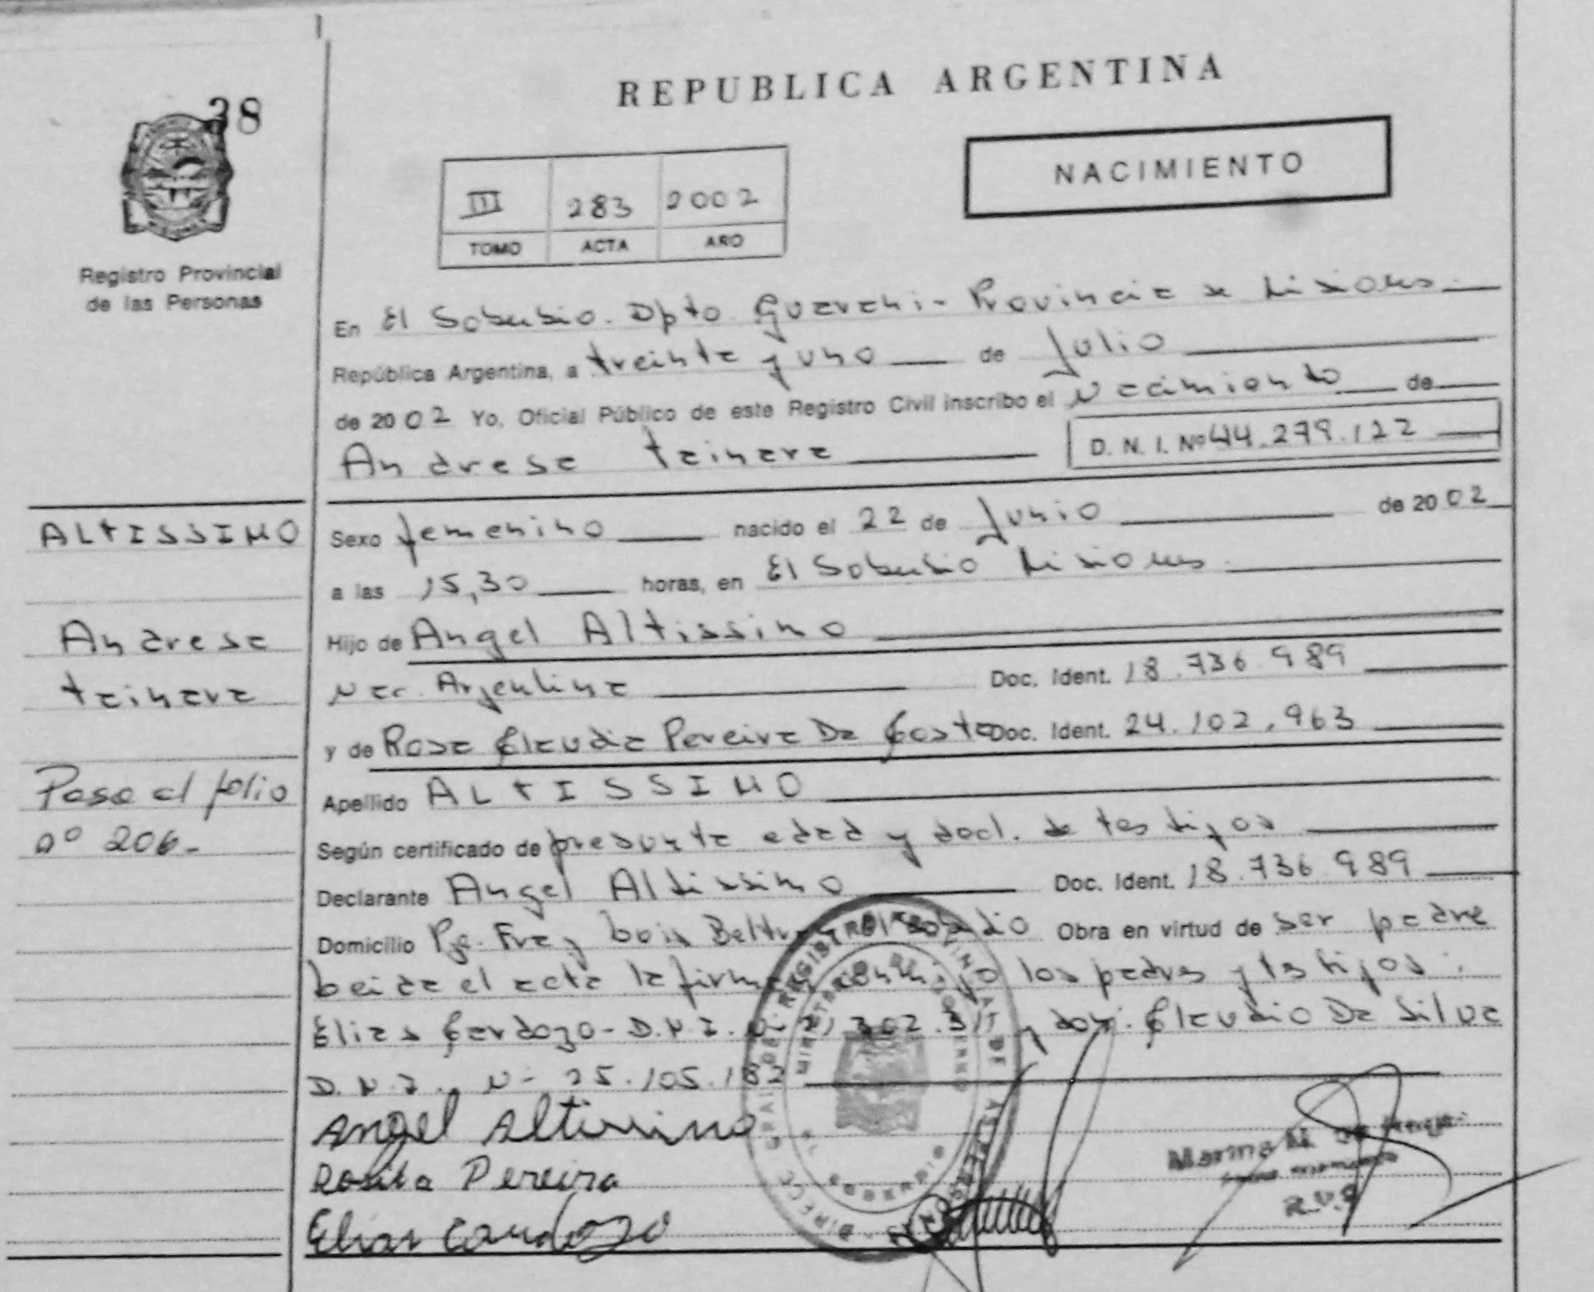 38
REPUBLICA ARGENTINA
NACIMIENTO
III 283 2002
TOMO ACTA AÑO
Registro Provincial
de las Personas
En El Soberbio. Dpto. Guarani - Provincia de Misiones.
República Argentina, a treinta y uno de Julio
de 2002 Yo, Oficial Público de este Registro Civil inscribo el Nacimiento de
Andresa tainara D. N. I. Nº 44.279.122
ALTISSIMO
Andresa
tainara
Paso al folio
nº 206-
Sexo femenino nacido el 22 de Junio de 2002
a las 15,30 horas, en El Soberbio Misiones.
Hijo de Angel Altissimo
Nac. Argentina Doc. Ident. 18.736.989
y de Rosa Claudia Pereira Da Costa Doc. Ident. 24.102.963
Apellido ALTISSIMO
Según certificado de presunta edad y decl. de testigos
Declarante Angel Altissimo Doc. Ident. 18.736.989
Domicilio Pje. Fray Luis Beltran El Soberbio Obra en virtud de ser padre
Leida el acta la firman conmigo los padres y testigos:
Elias Cardozo - D.N.I. Nº y don: Claudio Da Silva
D.N.I. Nº 25.105.182
Angel Altissimo
Rosita Pereira
Elias Cardozo
DIRECC. GRAL. DE REGISTRO PROVINCIAL DE LAS PERSONAS
MINISTERIO DE GOBIERNO
EL SOBERBIO
Marina M.
R.P.P